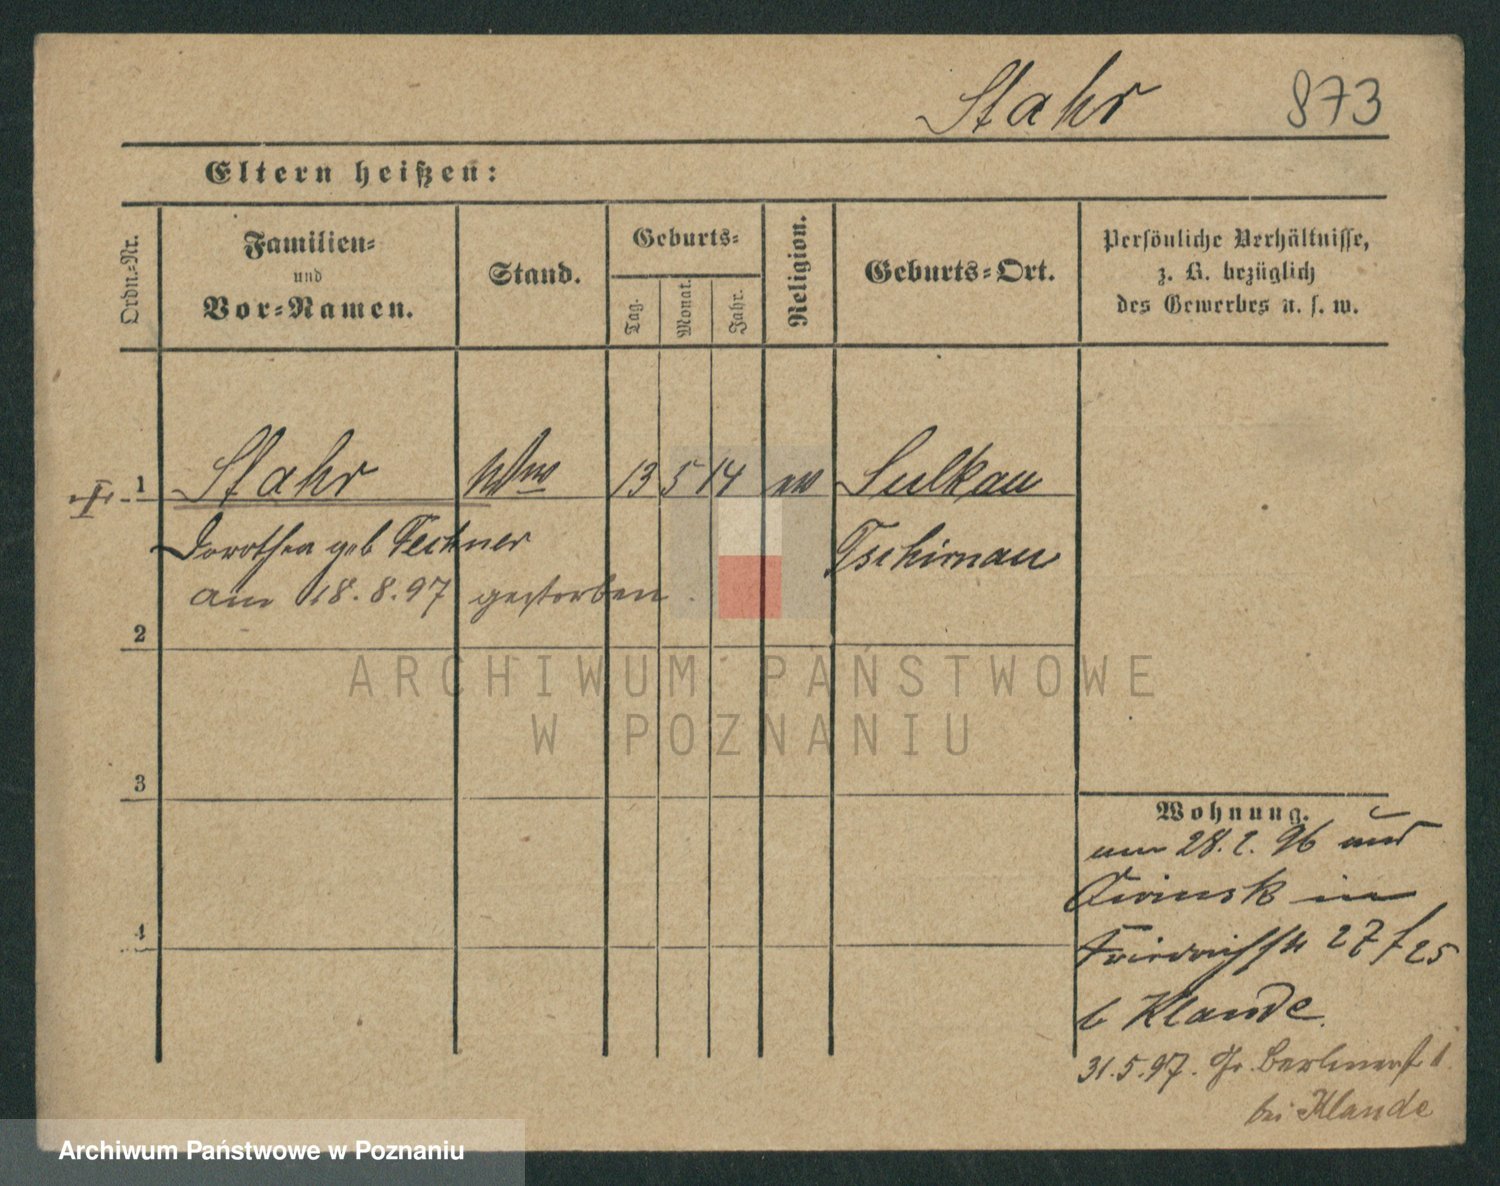 Stahr 873
Eltern heißen:
Ordn.-Nr.
Familien-
und
Vor-Namen.
Stand.
Geburts-
Tag.
Monat.
Jahr.
Religion.
Geburts-Ort.
Persönliche Verhältnisse,
z. B. bezüglich
des Gewerbes u. s. w.
1 Stahr Wwe 13 5 14 ev Sulkau
Dorothea geb Fechner Tschirnau
am 18.8.97 gestorben
2
3
4
Wohnung.
28.2.96
in
Friedrichstr 27/25
b Klaude
31.5.97. Gr. Berlinerst 1
bei Klaude
ARCHIWUM PAŃSTWOWE
W POZNANIU
Archiwum Państwowe w Poznaniu